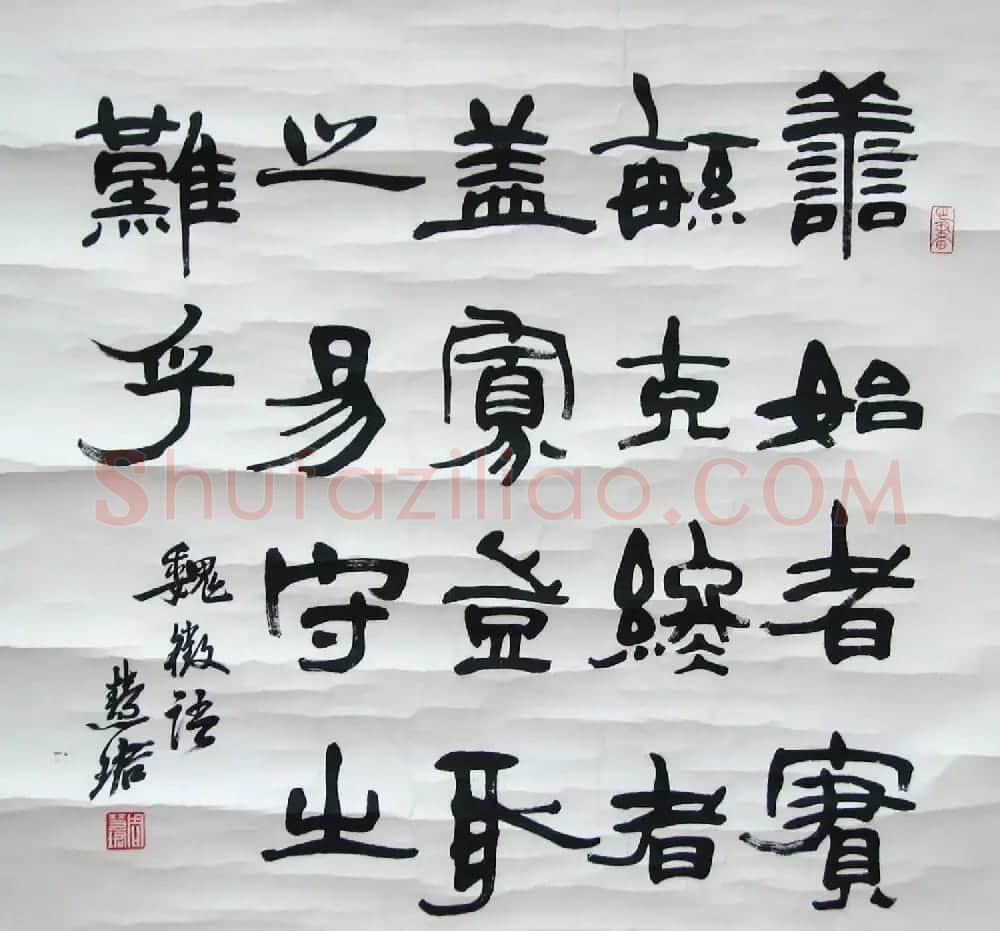 譱始者實
繁克終者
盖寡豈取
之易守之
難乎
魏徵語
慧珺
Shufaziliao.COM